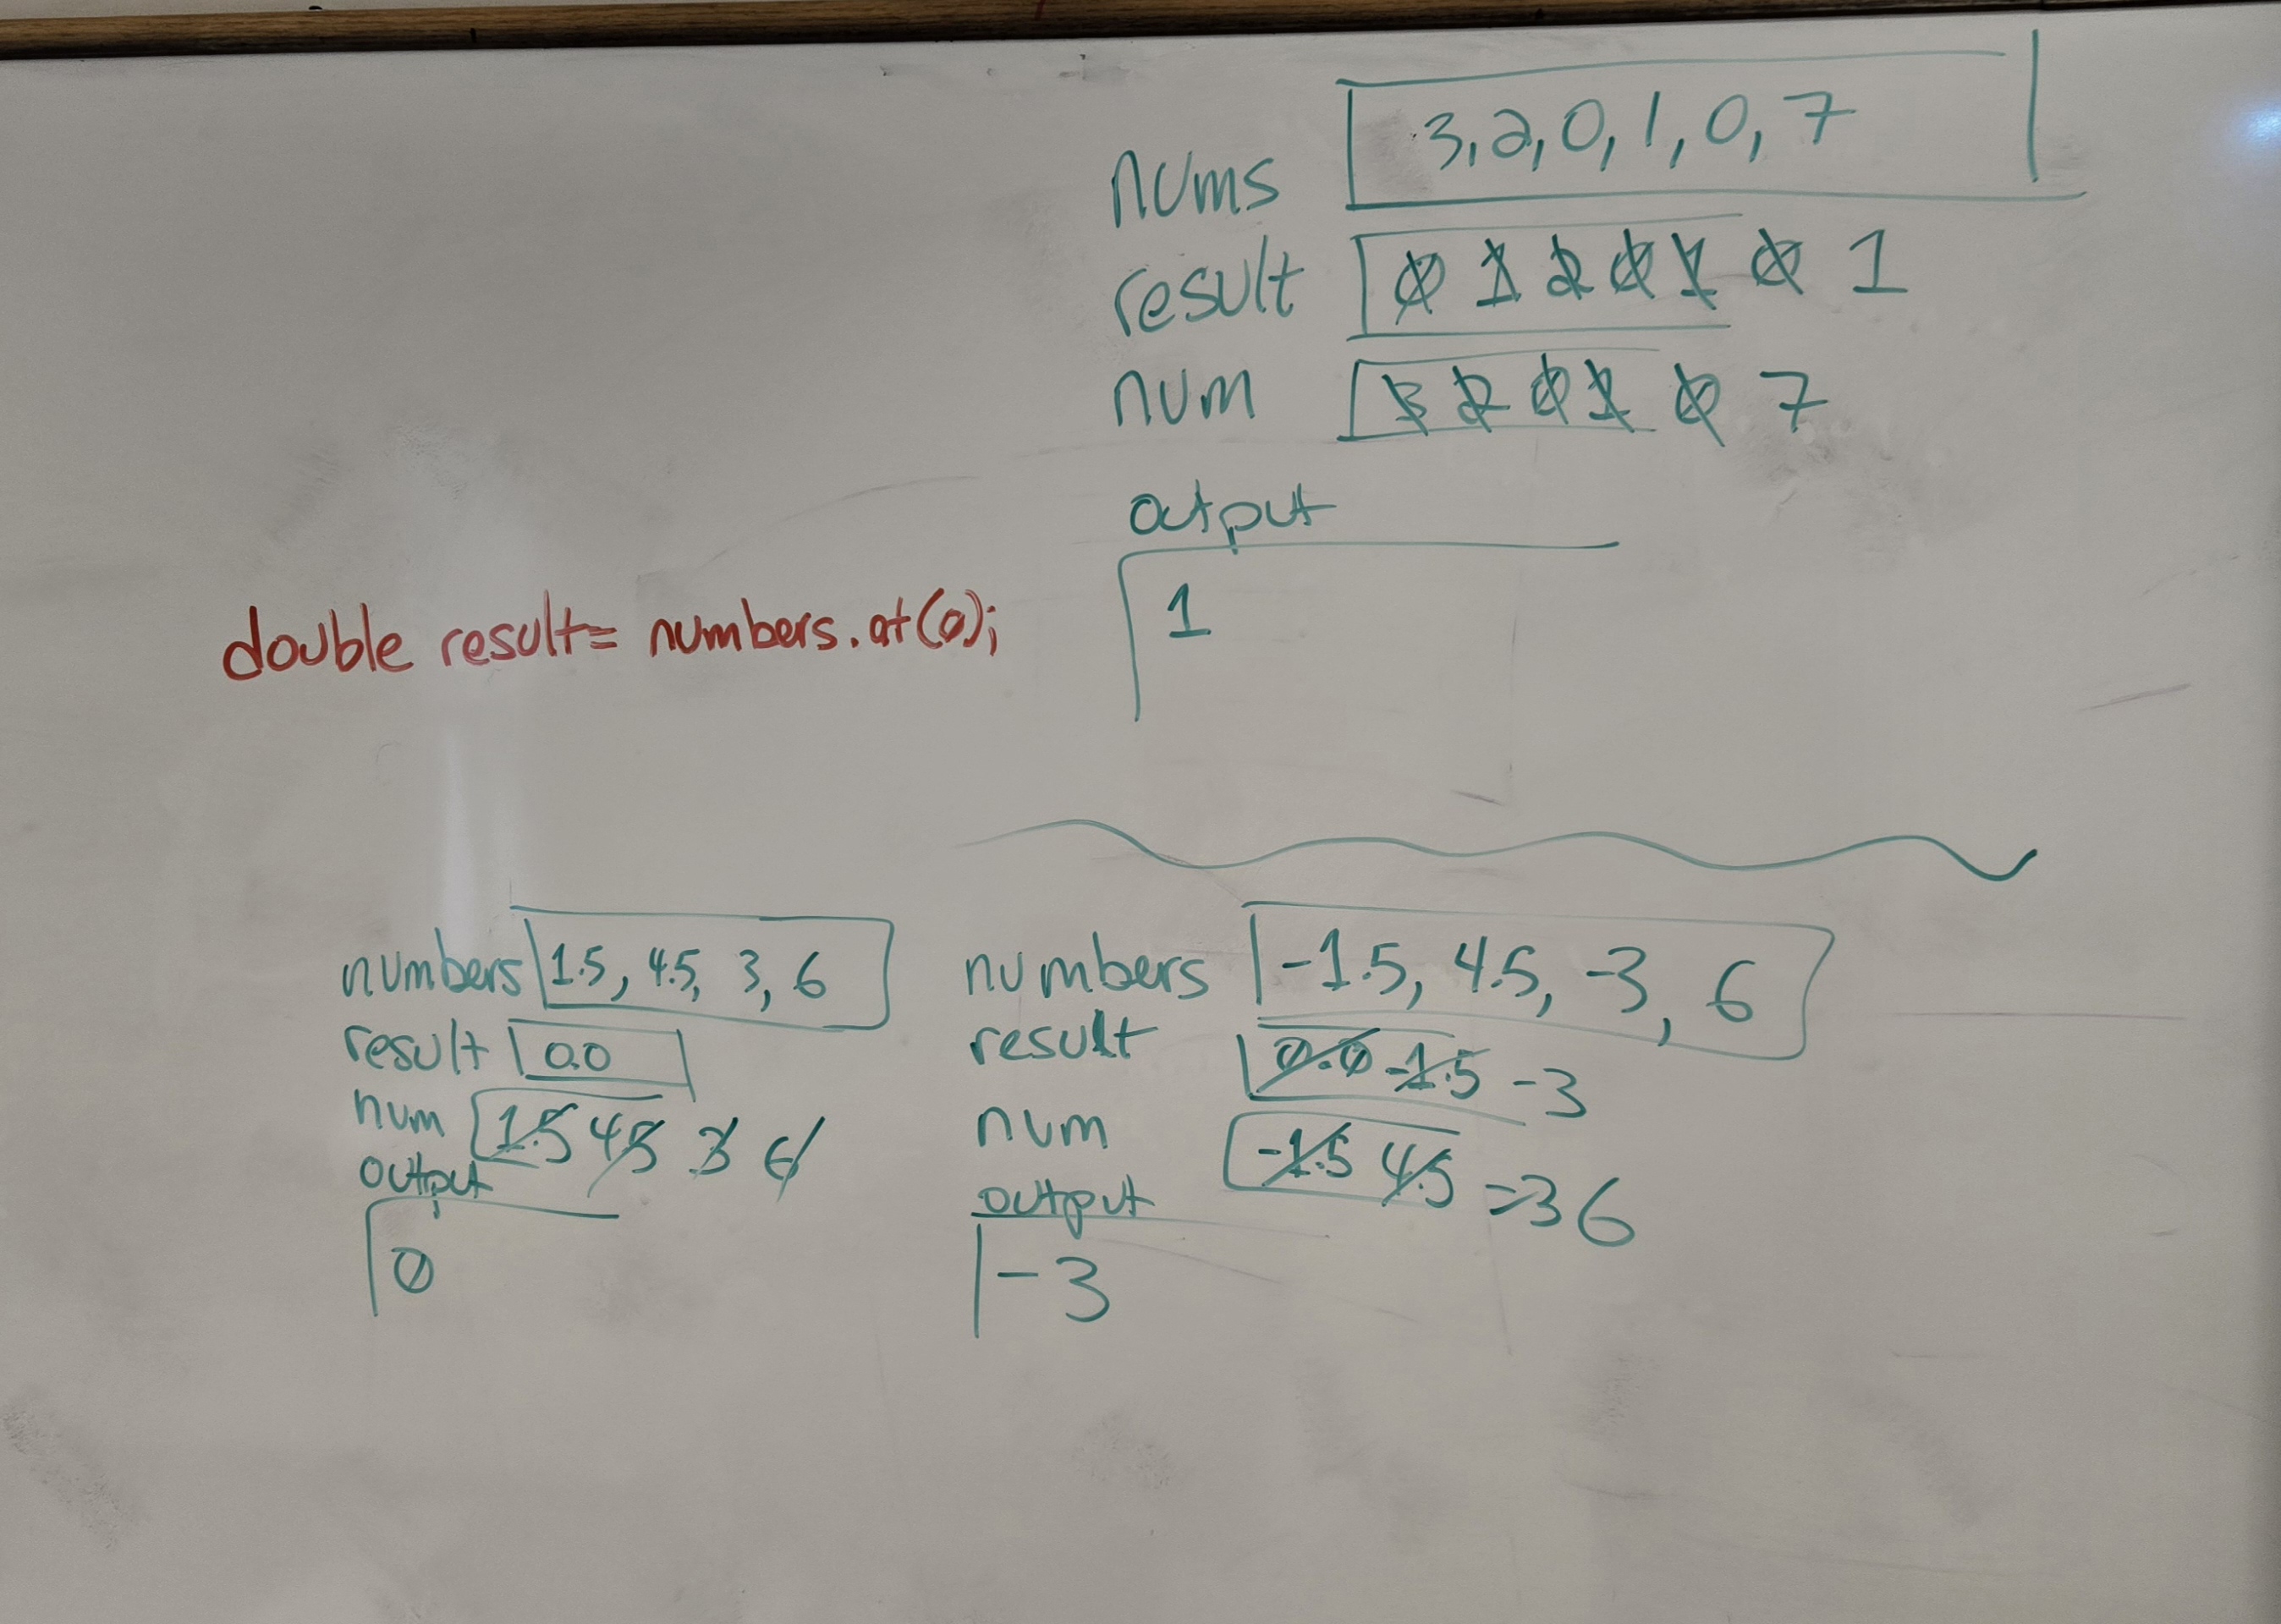 nums 3, 2, 0, 1, 0, 7
result 0 1 2 0 1 0 1
num 3 2 0 1 0 7
output
1
double result= numbers.at(0);
numbers 1.5, 4.5, 3, 6
result 0.0
num 1.5 4.5 3 6
output
0
numbers -1.5, 4.5, -3, 6
result 0.0 -1.5 -3
num -1.5 4.5 -3 6
output
-3